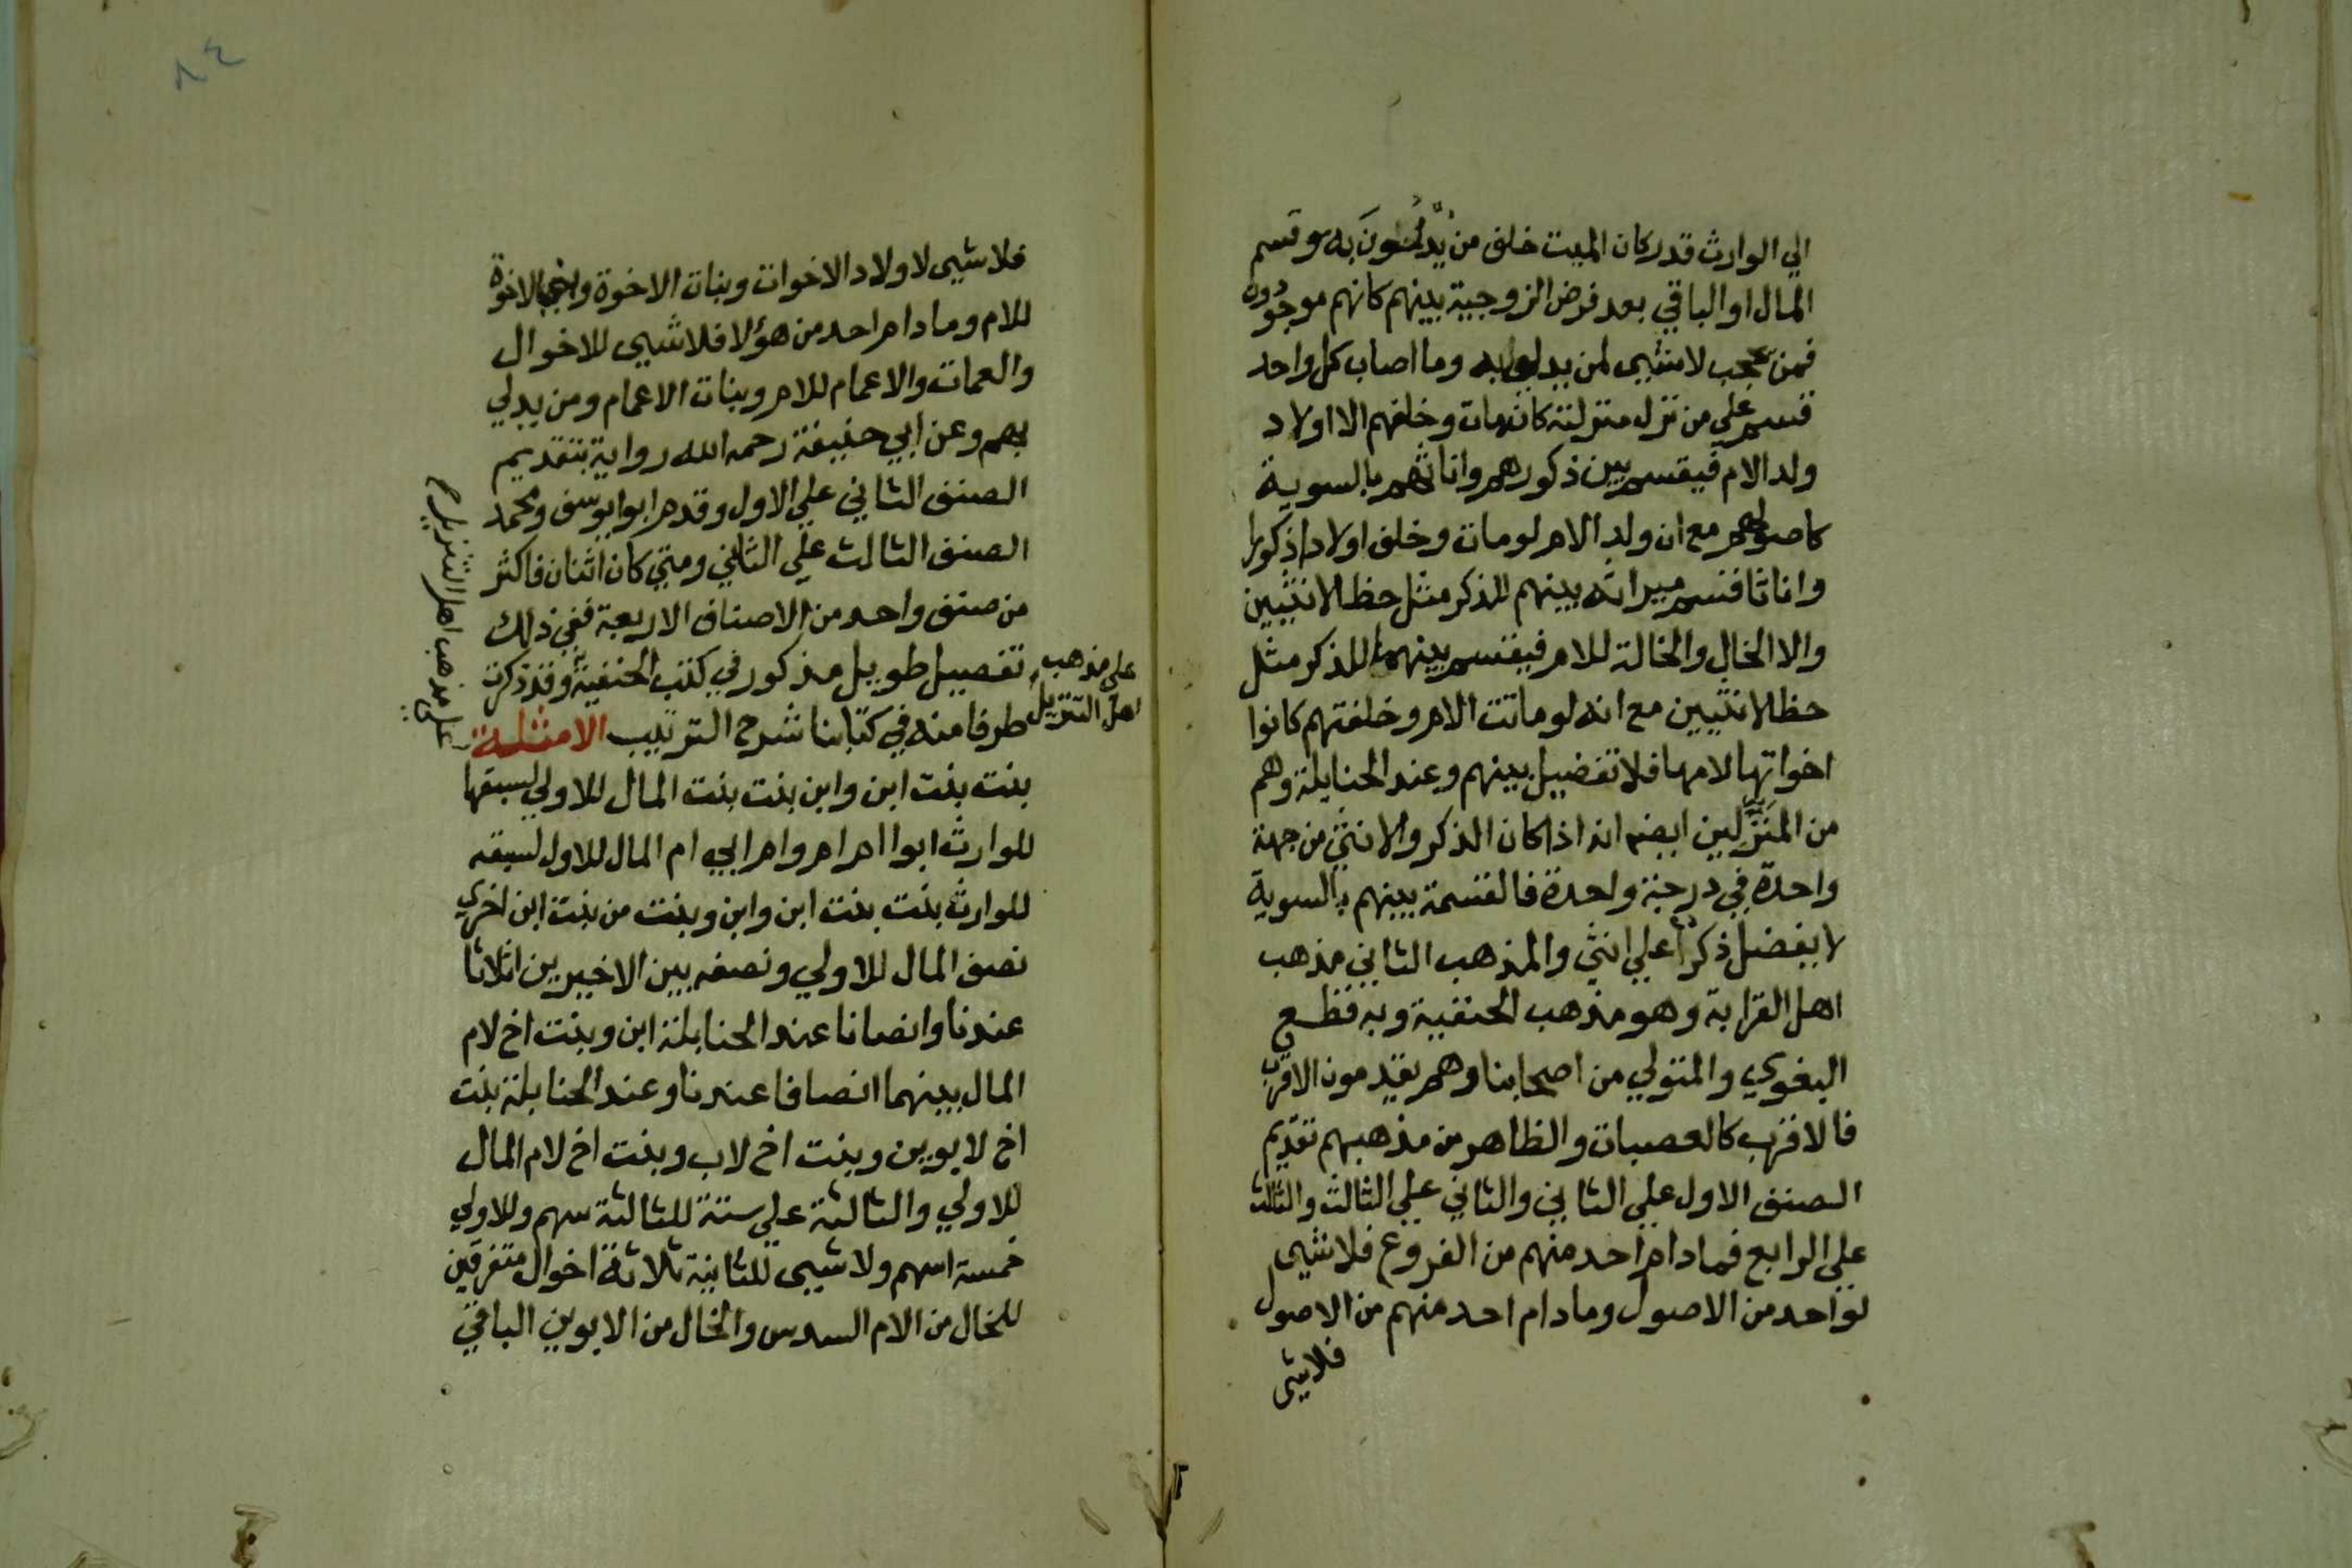 الي الوارث قدر كان الميت خلف من يدلون به وقسم
المال او الباقي بعد فرض الزوجية بينهم كانهم موجودون
فمن حجب لا شيى لمن يدلي به وما اصاب كل واحد
قسم علي من نزل منزلته كانه مات وخلفهم الا اولاد
ولد الام فيقسم بين ذكورهم واناثهم بالسوية
كاصولهم مع ان ولد الام لو مات وخلف اولادا ذكورا
واناثا قسم ميراثه بينهم للذكر مثل حظ الانثيين
والا الخال والخالة للام فيقسم بينهما للذكر مثل
حظ الانثيين مع انه لو ماتت الام وخلفتهم كانوا
اخواتها لامها فلا تفضيل بينهم وعند الحنابلة وهم
من المنزلين ايضا انه اذا كان الذكر والانثي من جهة
واحدة في درجة واحدة فالقسمة بينهم بالسوية
لا يفضل ذكر علي انثي والمذهب الثاني مذهب
اهل القرابة وهو مذهب الحنفية وبه قطع
البغوي والمتولي من اصحابنا وهم يقدمون الاقرب
فالاقرب كالعصبات والظاهر من مذهبهم تقديم
الصنف الاول علي الثاني والثاني علي الثالث والثالث
علي الرابع فمادام احد منهم من الفروع فلا شيى
لواحد من الاصول ومادام احد منهم من الاصول
فلا شيى
٨٤
فلا شيى لاولاد الاخوات وبنات الاخوة وبني الاخوة
للام ومادام احد من هؤلا فلا شيى للاخوال
والعمات والاعمام للام وبنات الاعمام ومن يدلي
بهم وعن ابي حنيفة رحمه الله رواية بتقديم
الصنف الثاني علي الاول وقدم ابو يوسف ومحمد
الصنف الثالث علي الثاني ومتي كان اثنان فاكثر
من صنف واحد من الاصناف الاربعة ففي ذلك
تفصيل طويل مذكور في كتب الحنفية وقد ذكرت
طرفا منه في كتابنا شرح الترتيب الامثلة
علي مذهب
اهل التنزيل
علي مذهب اهل التنزيل
بنت بنت ابن وابن بنت بنت المال للاولي لسبقها
للوارث ابو ام ام وام ابي ام المال للاول لسبقه
للوارث بنت بنت ابن وابن وبنت من بنت ابن اخري
نصف المال للاولي ونصفه بين الاخيرين اثلاثا
عندنا وانصافا عند الحنابلة ابن وبنت اخ لام
المال بينهما انصافا عندنا وعند الحنابلة بنت
اخ لابوين وبنت اخ لاب وبنت اخ لام المال
للاولي والثالثة علي ستة للثالثة سهم وللاولي
خمسة اسهم ولا شيى للثانية ثلاثة اخوال متفرقين
للخال من الام السدس والخال من الابوين الباقي